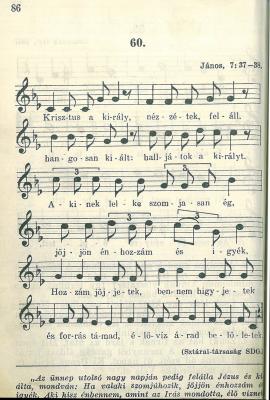 86
60.
János, 7:37–38.
Krisz-tus a ki-rály, néz-zé-tek, fel-áll.
han-go-san ki-ált: hall-já-tok a ki-rályt.
A-ki-nek lel-ke szom-ja-san ég,
jöj-jön én-hoz-zám és i-gyék.
Hoz-zám jöj-je-tek, ben-nem higy-je-tek
és for-rás tá-mad, é-lő-víz á-rad be-lő-le-tek.
(Sztárai-társaság SDG)
„Az ünnep utolsó nagy napján pedig felálla Jézus és ki
álta, mondván: Ha valaki szomjúhozik, jöjjön énhozzám é
igyék. Aki hisz énbennem, amint az Írás mondotta, élő vízne